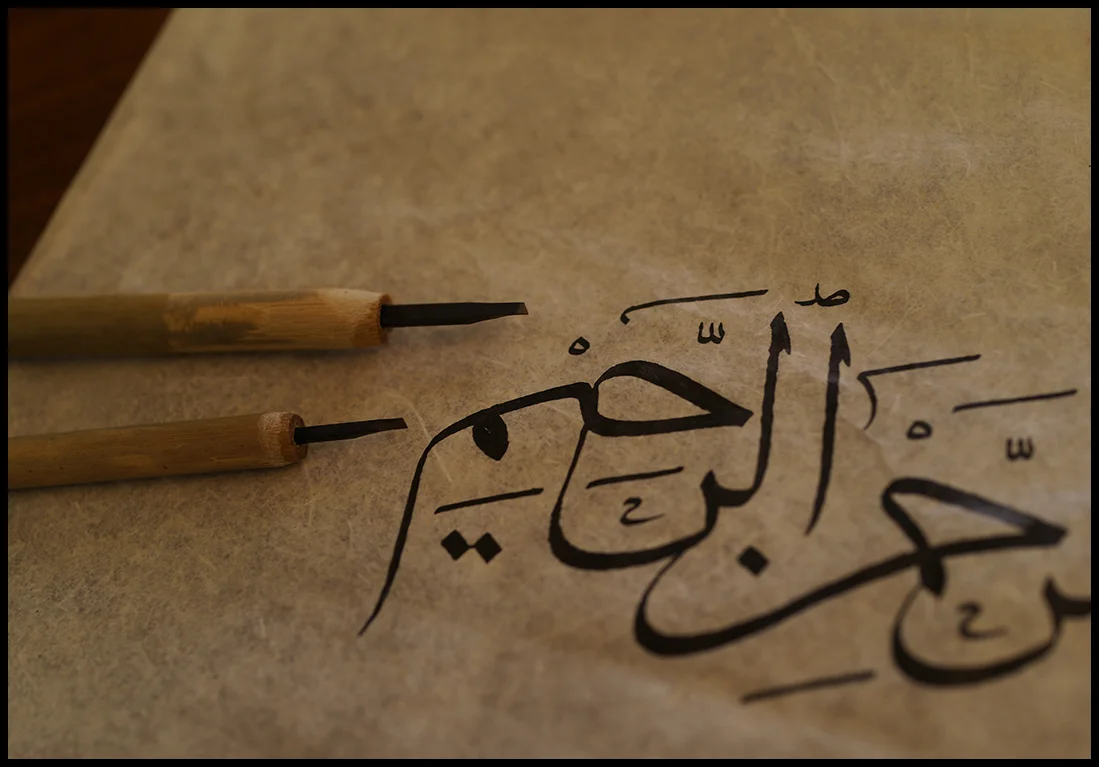 رَّحْمَٰنِ ٱلرَّحِيمِ